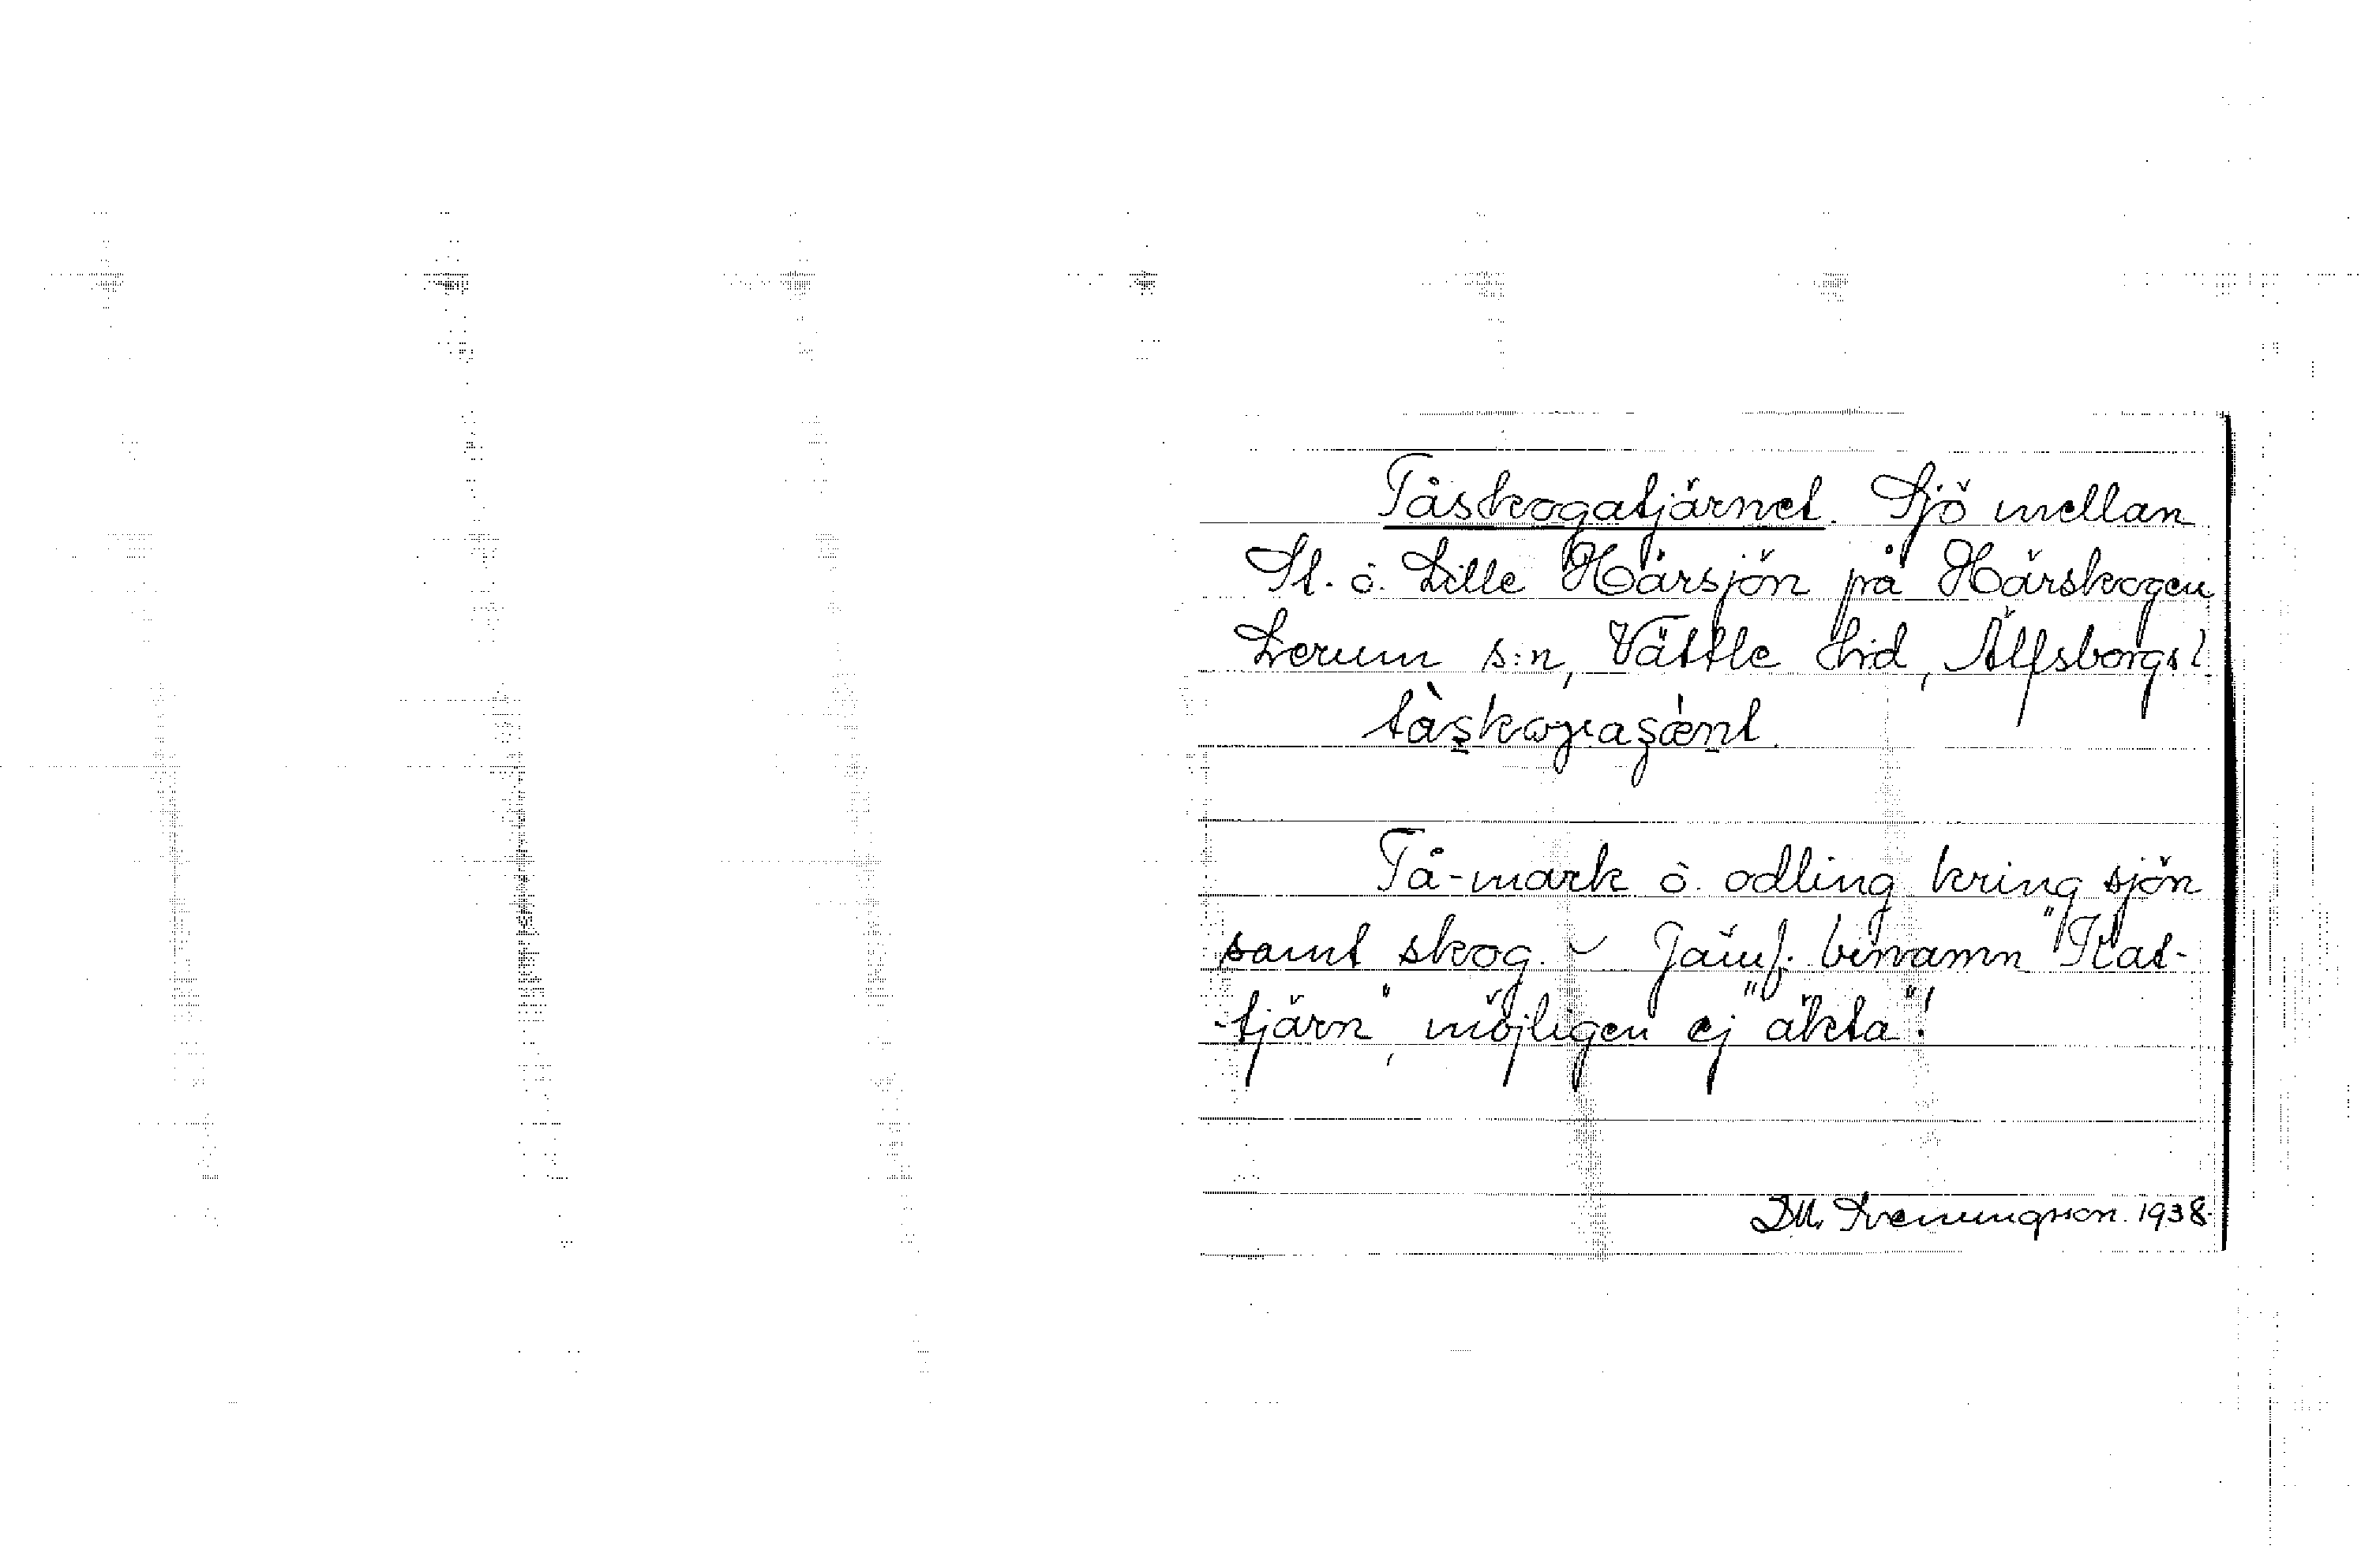 Tåskogatjärnet. Sjö mellan
St. o. Lille Härsjön på Härskogen
Lerum s:n, Vättle hd, Älfsborgs l
tåskoγaʂænt.
Tå-mark o. odling kring sjön
samt skog. ~ Jämf. binamn "Kat-
-tjärn", möjligen ej "äkta"!
D.M. Sveningsson. 1938.